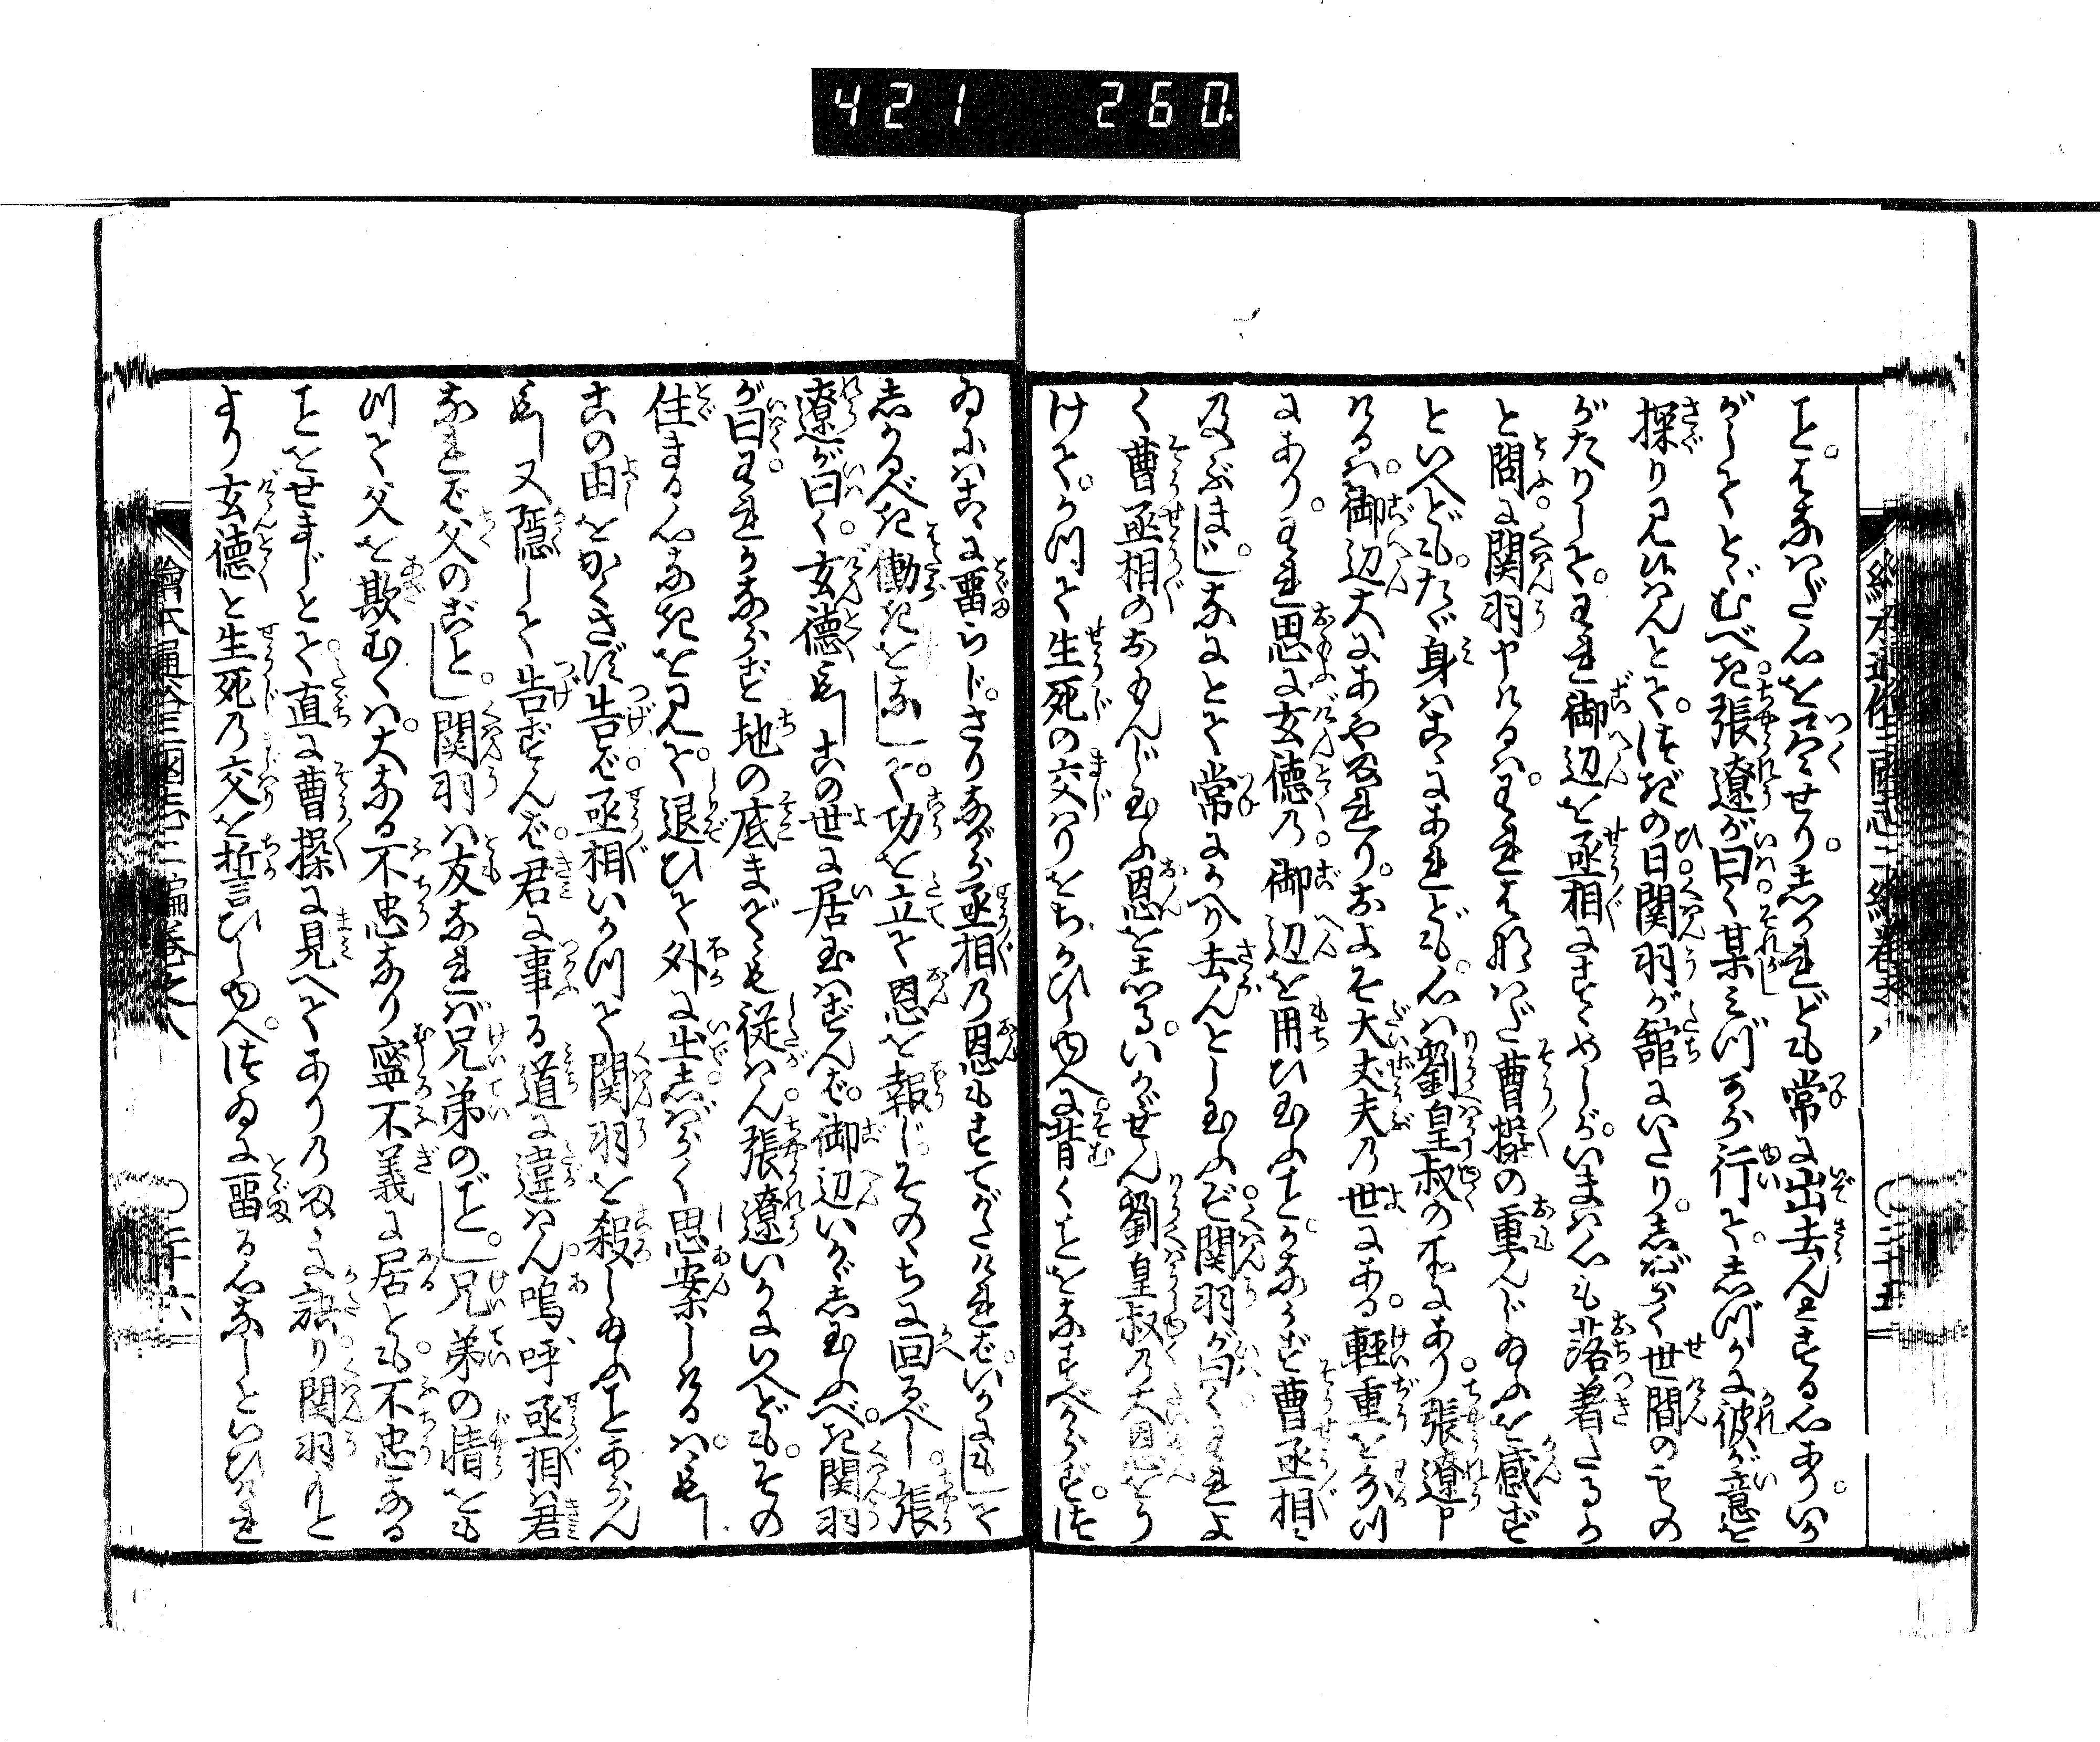 421 260.
こと。はなはだ心を尽せり。しかれども常に出去んとする心あり。いか
がしてとゞむべき。張遼が曰く某みづから行て。しづかに彼が意を
探り見候はんとて。次の日関羽が館にいたり。しばらく世間の
がたりして。われ御辺を丞相にすゝめしが。いまは心も落着たるか
と問。に関羽申けるは。われはなはだ曹操の重んじ給ふを感ず
といへども。たゞ身はこゝにあれども。心は劉皇叔の所にあり。張遼申
けるは。御辺大にあやまれり。およそ大丈夫の世にある。軽重をわかつ
にあり。われ思に玄徳の。御辺を用ひ玉ふことかならず曹丞相に
及ぶまじ。なにとて常にかへり去んとし玉ふぞ。関羽が曰くわれよ
く曹丞相のおもんじ玉ふ恩をしる。いかゞせん劉皇叔の大恩をう
けて。かつて生死の交はりをちかひしゆへに。背くことをなすべからず。つ
ゐにはこゝに留らじ。さりながら丞相の恩もすてがたければ。いかにもして
しかるべき働きをなして。功を立て恩を報じ。そのゝちに回るべし。張
遼が曰く。玄徳もしこの世に居玉はずんば。御辺いかゞし玉ふべき。関羽
が曰。われかならず地の底までも従はん。張遼いかにいへども。その
住まる心なきを見て。退ひて外に出。しばらく思案しけるは。もし
この由をかくさず告ば。丞相いかつて関羽を殺し給ふことあらん
もし又隠して告ずんば。君に事る道に違はん。嗚呼丞相は君
なれば父のごとし。関羽は友なれば兄弟のごとし。兄弟の情をも
つて父を欺むくは。大なる不忠なり寧不義に居とも。不忠なる
ことをせまじとて。直に曹操に見へてありのまゝに語り。関羽もと
より玄徳と生死の交を折言ひしゆへ。つゐに留る心なしといひければ
繪本通俗三國志二編巻之八
〇二十五
繪本通俗三國志二編巻之八
〇二十六